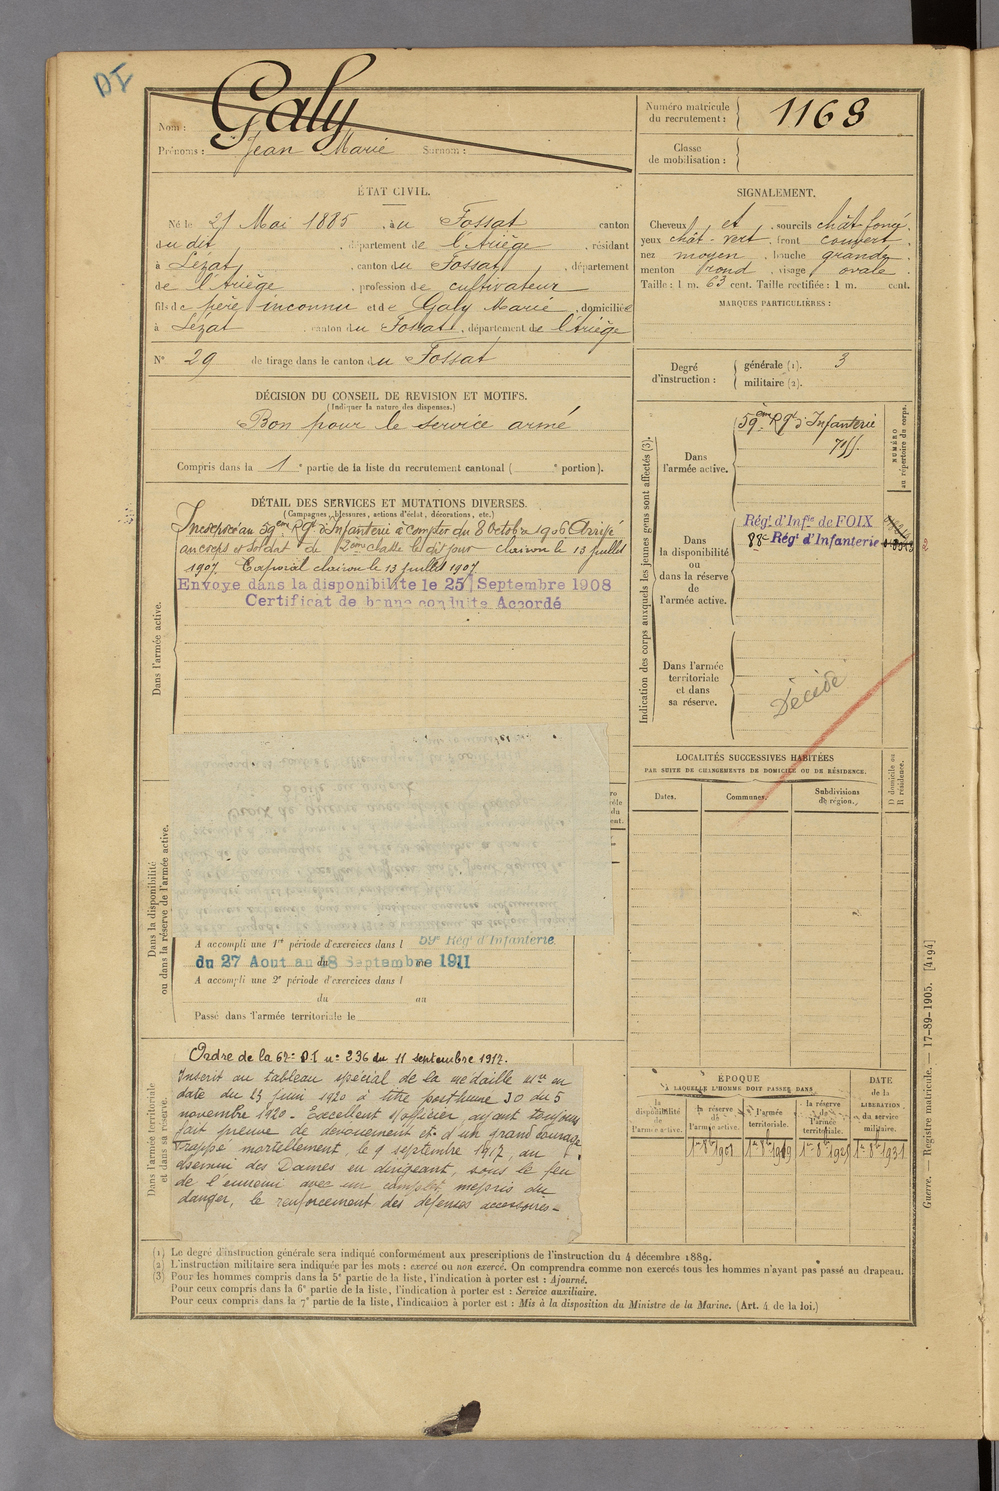 DI
Nom : Galy
Prénoms : Jean Marie Surnom :
Numéro matricule du recrutement : 1168
Classe de mobilisation :
ÉTAT CIVIL.
Né le 21 Mai 1885, à u Fossat canton
du dit, département de l'Ariège, résidant
à Lézat, canton du Fossat, département
de l'Ariège, profession de cultivateur
fils de père inconnu et de Galy Marie, domiciliée
à Lézat canton du Fossat, département de l'Ariège
N° 29 de tirage dans le canton du Fossat
SIGNALEMENT.
Cheveux et, sourcils chât-foncé.
yeux chât-vert, front couvert.
nez moyen, bouche grande,
menton rond, visage ovale.
Taille : 1 m. 63 cent. Taille rectifiée : 1 m. cent.
MARQUES PARTICULIÈRES :
Degré d'instruction :
générale (1). 3
militaire (2).
DÉCISION DU CONSEIL DE REVISION ET MOTIFS.
(Indiquer la nature des dispenses.)
Bon pour le service armé
Compris dans la 1e partie de la liste du recrutement cantonal ( e portion).
DÉTAIL DES SERVICES ET MUTATIONS DIVERSES.
(Campagnes, blessures, actions d'éclat, décorations, etc.)
Dans l'armée active.
Incorporé au 59ème Rgt d'Infanterie à compter du 8 Octobre 1906 Arrivé
au corps et soldat de 2ème classe le dit jour clairon le 13 juillet
1907. Caporal clairon le 13 juillet 1907
Envoye dans la disponibilité le 25 Septembre 1908
Certificat de bonne conduite Accordé
Indication des corps auxquels les jeunes gens sont affectés (3).
NUMÉRO au répertoire du corps.
Dans l'armée active.
59ème Rgt d'Infanterie
Dans la disponibilité ou dans la réserve de l'armée active.
Régt d'Infie de FOIX
88e Régt d'Infanterie
Dans l'armée territoriale et dans sa réserve.
Décédé
LOCALITÉS SUCCESSIVES HABITÉES
PAR SUITE DE CHANGEMENTS DE DOMICILE OU DE RÉSIDENCE.
Dates. Communes. Subdivisions de région.
D domicile ou R résidence.
Dans la disponibilité ou dans la réserve de l'armée active.
A accompli une 1re période d'exercices dans l 59e Régt d'Infanterie
du 27 Aout au 18 Septembre 1911
A accompli une 2e période d'exercices dans l
du au
Passé dans l'armée territoriale le
Dans l'armée territoriale et dans sa réserve.
Ordre de la 67e D.I n° 236 du 11 septembre 1917.
Inscrit au tableau spécial de la médaille mre en
date du 13 juin 1920 à titre posthume JO du 5
novembre 1920 - Excellent s/officier ayant toujours
fait preuve de dévouement et d'un grand courage
Frappé mortellement, le 9 septembre 1917, au
chemin des Dames en dirigeant, sous le feu
de l'ennemi avec un complet mépris du
danger, le renforcement des défenses accessoires -
ÉPOQUE
À LAQUELLE L'HOMME DOIT PASSER DANS
la disponibilité de l'armée active.
la réserve de l'armée active.
l'armée territoriale.
la réserve de l'armée territoriale.
DATE de la LIBÉRATION du service militaire.
Guerre. — Registre matricule. — 17-89-1905. [4194]
(1) Le degré d'instruction générale sera indiqué conformément aux prescriptions de l'instruction du 4 décembre 1889.
(2) L'instruction militaire sera indiquée par les mots : exercé ou non exercé. On comprendra comme non exercés tous les hommes n'ayant pas passé au drapeau.
(3) Pour les hommes compris dans la 5e partie de la liste, l'indication à porter est : Ajourné.
Pour ceux compris dans la 6e partie de la liste, l'indication à porter est : Service auxiliaire.
Pour ceux compris dans la 7e partie de la liste, l'indication à porter est : Mis à la disposition du Ministre de la Marine. (Art. 4 de la loi.)